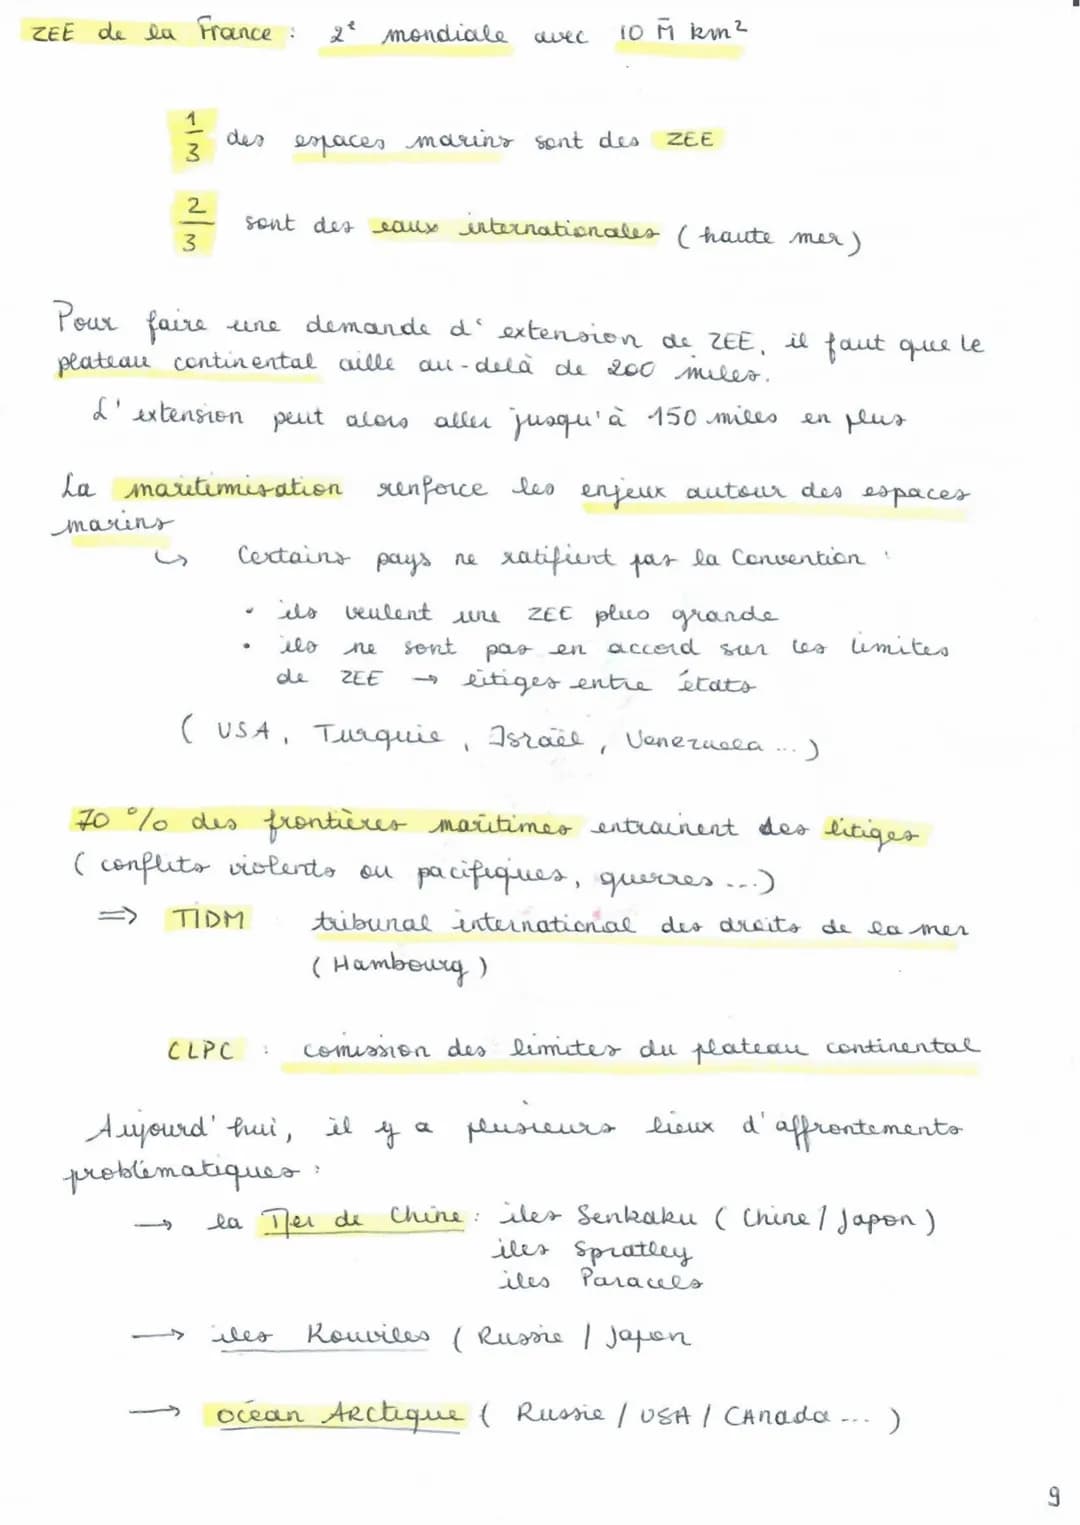 ZEE de la France : 2e mondiale avec 10 M̄ km²
1/3 des espaces marins sont des ZEE
2/3 sont des eaux internationales (haute mer)
Pour faire une demande d'extension de ZEE, il faut que le
plateau continental aille au-delà de 200 miles.
L'extension peut alors aller jusqu'à 150 miles en plus
La maritimisation renforce les enjeux autour des espaces
marins
↳ Certains pays ne ratifient pas la Convention :
• ils veulent une ZEE plus grande
• ils ne sont pas en accord sur les limites
de ZEE → litiges entre états
( USA, Turquie, Israël, Venezuela ... )
70 % des frontières maritimes entrainent des litiges
( conflits violents ou pacifiques, guerres ...)
=> TIDM tribunal international des droits de la mer
( Hambourg )
CLPC : comission des limites du plateau continental
Aujourd'hui, il y a plusieurs lieux d'affrontements
problématiques :
→ la Mer de Chine : iles Senkaku ( Chine / Japon )
iles Spratley
iles Paracels
→ iles Kouriles ( Russie / Japon
→ océan ARctique ( Russie / USA / CAnada ... )
9